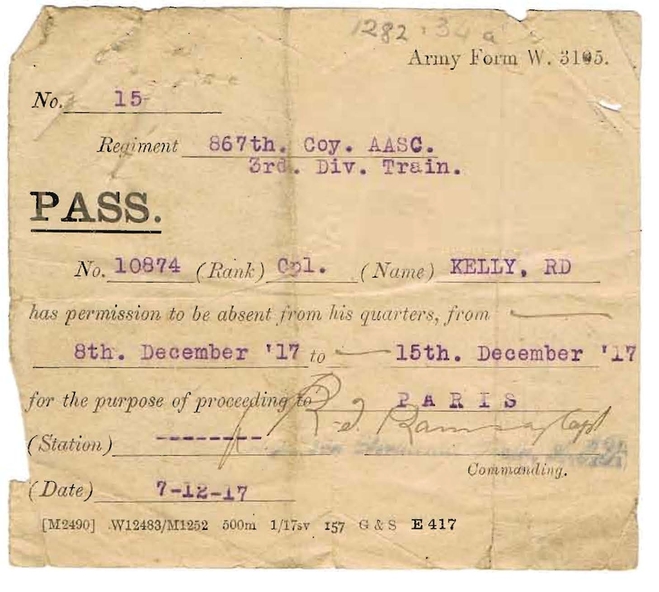 1282
Army Form W. 3105.
No. 15-
Regiment 867th. Coy. AASC.
3rd. Div. Train.
PASS.
No. 10874 (Rank) Cpl. (Name) KELLY, RD
has permission to be absent from his quarters, from
8th. December '17 to — 15th. December '17
for the purpose of proceeding to PARIS
R. J. Ramsay Capt
(Station) --------
Commanding.
(Date) 7-12-17
[M2490] .W12483/M1252 500m 1/17sv 157 G & S E 417